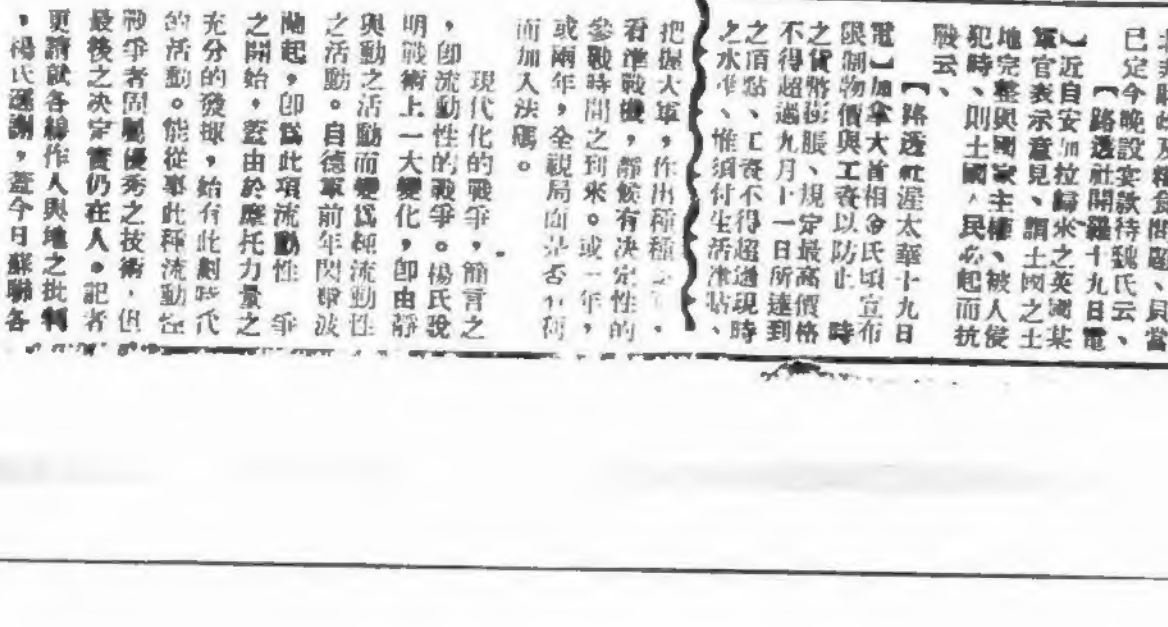 已定今晚設宴款待魏氏云、
【路透社開羅十九日電
】近自安加拉歸來之英國某
軍官表示意見、謂土國之土
地完整與國家主權、被人侵
犯時、則土國人民必起而抗
戰云、
【路透社渥太華十九日
電】加拿大首相金氏頃宣布
限制物價與工資以防止 時
之貨幣膨脹、規定最高價格
不得超過九月十一日所達到
之頂點、工資不得超過現時
之水準、惟須付生活津貼、
把握大軍，作出種種
看準戰機，靜候有决定性的
參戰時間之到來。或一年，
或兩年，全視局面是否有利
而加入決戰。
現代化的戰爭，簡言之
，卽流動性的戰爭。楊氏說
明戰術上一大變化，卽由靜
與動之活動而變爲極流動性
之活動。自德軍前年閃擊波
蘭起，卽爲此項流動性 爭
之開始，蓋由於摩托力量之
充分的發揮，始有此劃時代
的活動。能從事此種流動性
戰爭者固屬優秀之技術，但
最後之决定實仍在人。記者
更請就各線作人與地之批判
，楊氏遜謝，蓋今日蘇聯各